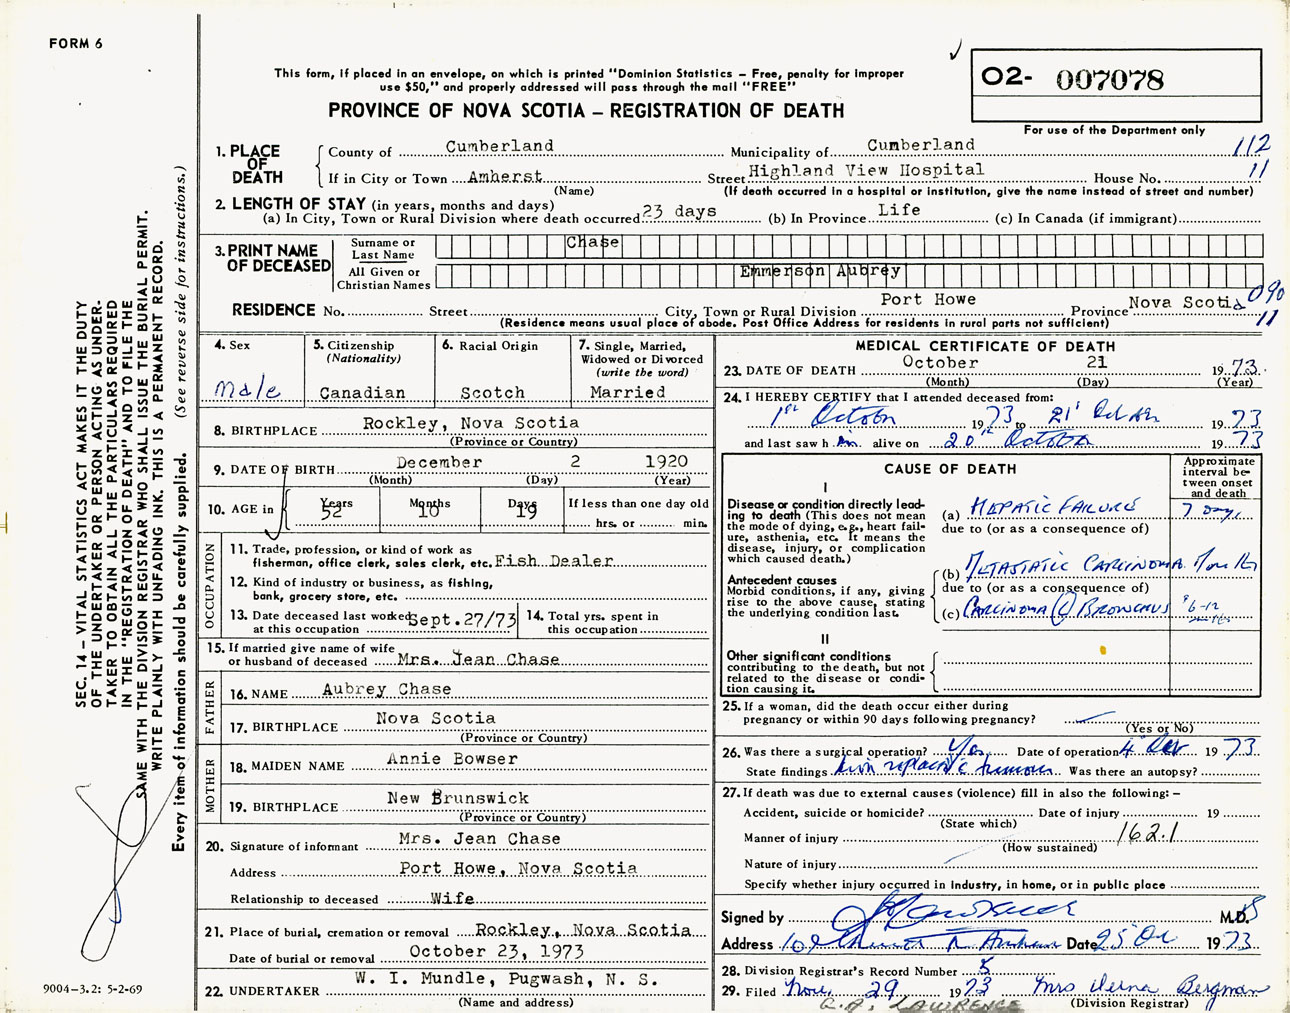 FORM 6
This form, if placed in an envelope, on which is printed "Dominion Statistics – Free, penalty for improper
use $50," and properly addressed will pass through the mail "FREE"
PROVINCE OF NOVA SCOTIA – REGISTRATION OF DEATH
O2- 007078
For use of the Department only
1. PLACE OF DEATH
County of Cumberland Municipality of Cumberland 112
If in City or Town Amherst Street Highland View Hospital House No. 11
(Name) (If death occurred in a hospital or institution, give the name instead of street and number)
2. LENGTH OF STAY (in years, months and days)
(a) In City, Town or Rural Division where death occurred 23 days (b) In Province Life (c) In Canada (if immigrant)
3. PRINT NAME OF DECEASED
Surname or Last Name Chase
All Given or Christian Names Emmerson Aubrey
RESIDENCE No. Street City, Town or Rural Division Port Howe Province Nova Scotia 090
(Residence means usual place of abode. Post Office Address for residents in rural parts not sufficient) 11
4. Sex Male
5. Citizenship (Nationality) Canadian
6. Racial Origin Scotch
7. Single, Married, Widowed or Divorced (write the word) Married
8. BIRTHPLACE Rockley, Nova Scotia
(Province or Country)
9. DATE OF BIRTH December 2 1920
(Month) (Day) (Year)
10. AGE in Years 52 Months 10 Days 19 If less than one day old
hrs. or min.
OCCUPATION
11. Trade, profession, or kind of work as
fisherman, office clerk, sales clerk, etc. Fish Dealer
12. Kind of industry or business, as fishing,
bank, grocery store, etc.
13. Date deceased last worked at this occupation Sept.27/73
14. Total yrs. spent in this occupation
15. If married give name of wife
or husband of deceased Mrs. Jean Chase
FATHER
16. NAME Aubrey Chase
17. BIRTHPLACE Nova Scotia
(Province or Country)
MOTHER
18. MAIDEN NAME Annie Bowser
19. BIRTHPLACE New Brunswick
(Province or Country)
20. Signature of informant Mrs. Jean Chase
Address Port Howe, Nova Scotia
Relationship to deceased Wife
21. Place of burial, cremation or removal Rockley, Nova Scotia
Date of burial or removal October 23, 1973
22. UNDERTAKER W. I. Mundle, Pugwash, N. S.
(Name and address)
MEDICAL CERTIFICATE OF DEATH
23. DATE OF DEATH October 21 1973
(Month) (Day) (Year)
24. I HEREBY CERTIFY that I attended deceased from:
1st October 1973 to 21st October 1973
and last saw him alive on 20th October 1973
CAUSE OF DEATH
Approximate interval between onset and death
I
Disease or condition directly leading to death (This does not mean the mode of dying, e.g., heart failure, asthenia, etc. It means the disease, injury, or complication which caused death.)
(a) HEPATIC FAILURE 7 Days
due to (or as a consequence of)
Antecedent causes
Morbid conditions, if any, giving rise to the above cause, stating the underlying condition last.
(b) METASTATIC CARCINOMA
due to (or as a consequence of)
(c) CARCINOMA (L) BRONCHUS 6-12
II
Other significant conditions
contributing to the death, but not related to the disease or condition causing it.
25. If a woman, did the death occur either during
pregnancy or within 90 days following pregnancy?
(Yes or No)
26. Was there a surgical operation? Yes Date of operation 4 1973
State findings Was there an autopsy?
27. If death was due to external causes (violence) fill in also the following: –
Accident, suicide or homicide? Date of injury 19
(State which)
Manner of injury 162.1
(How sustained)
Nature of injury
Specify whether injury occurred in industry, in home, or in public place
Signed by M.D.
Address Date 25 Oct 1973
28. Division Registrar's Record Number 5
29. Filed Nov. 29 1973 Mrs Verna Bergman
(Division Registrar)
LAWRENCE
SEC. 14 – VITAL STATISTICS ACT MAKES IT THE DUTY
OF THE UNDERTAKER OR PERSON ACTING AS UNDER-
TAKER TO OBTAIN ALL THE PARTICULARS REQUIRED
IN THE "REGISTRATION OF DEATH" AND TO FILE THE
SAME WITH THE DIVISION REGISTRAR WHO SHALL ISSUE THE BURIAL PERMIT.
WRITE PLAINLY WITH UNFADING INK. THIS IS A PERMANENT RECORD.
Every item of information should be carefully supplied. (See reverse side for instructions.)
9004-3.2: 5-2-69